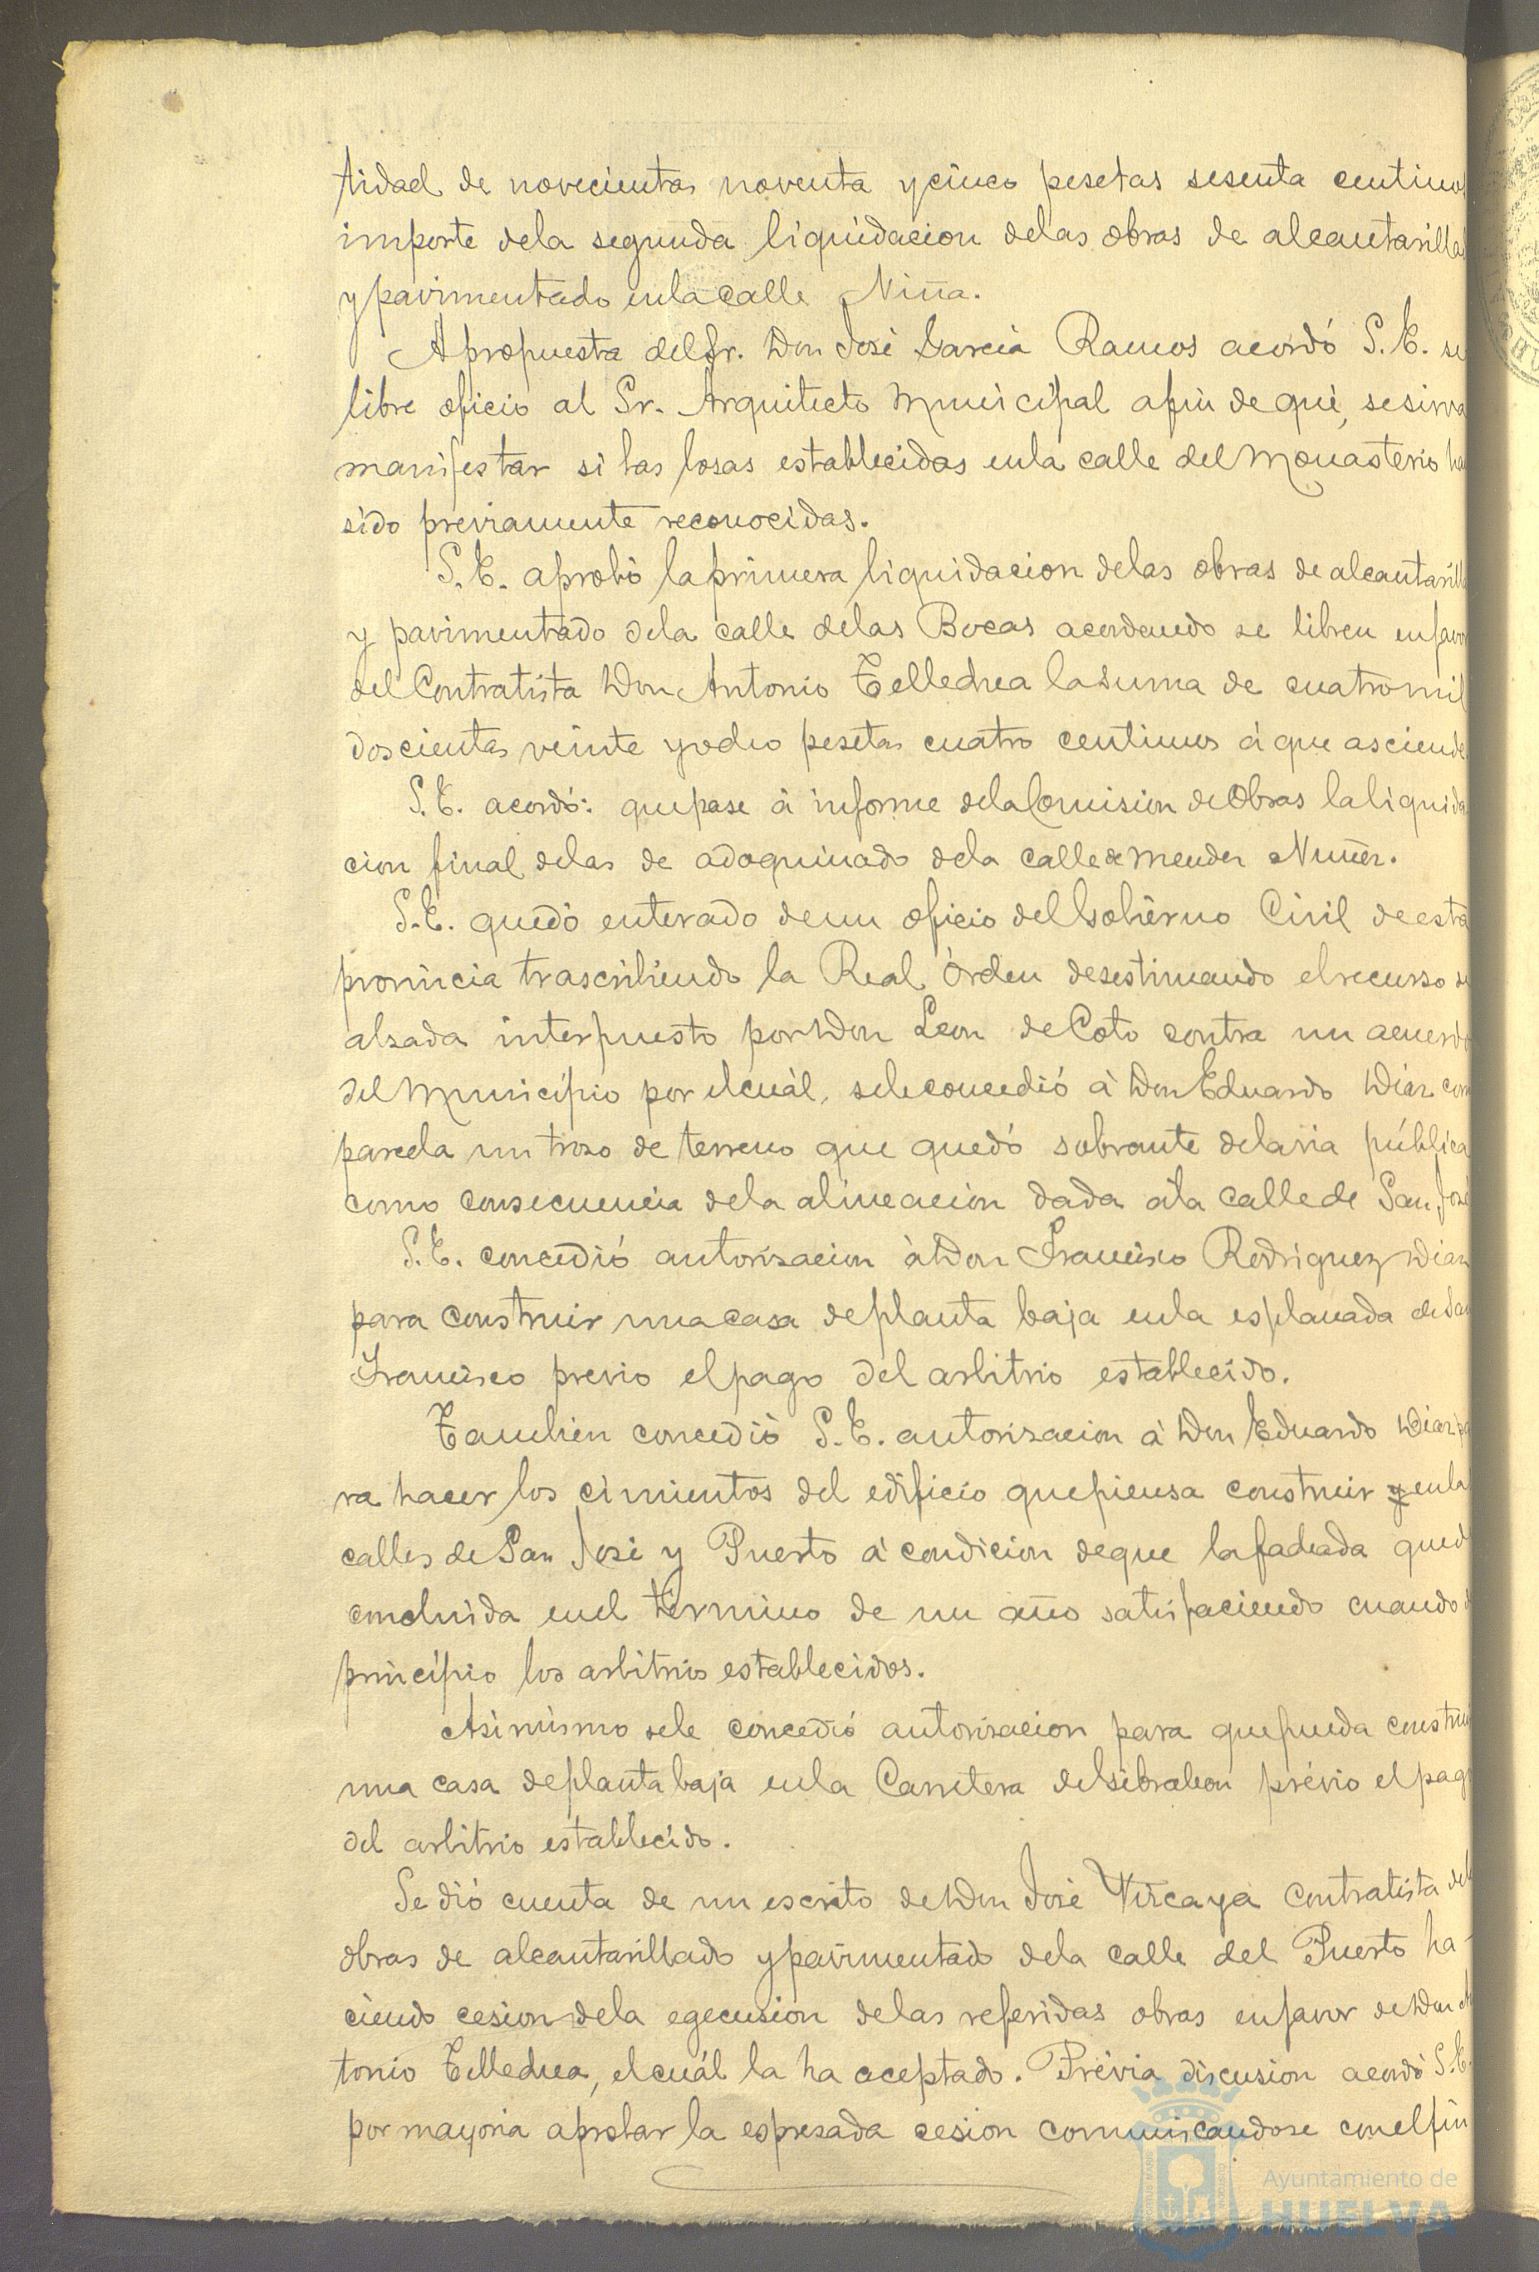 tidad de novecientas noventa y cinco pesetas sesenta centimos
importe dela segunda liquidacion delas obras de alcantarillad
y pavimentado enla calle Niña.
A propuesta del Sr. Don José Garcia Ramos acordó S. E. se
libre oficio al Sr. Arquitecto Municipal afin de que, se sirva
manifestar si las losas establecidas enla calle del Monasterio ha
sido previamente reconocidas.
S. E. aprobó la primera liquidacion delas obras de alcantarill
y pavimentado dela calle delas Bocas acordando se libren en favor
del Contratista Don Antonio Tellechea la suma de cuatro mil
doscientas veinte y ocho pesetas cuatro centimos á que asciende
S. E. acordó: que pase á informe dela Comision de Obras la liquida
cion final delas de adoquinado dela calle de Mendez Nuñez.
S. E. quedó enterado de un oficio del Gobierno Civil de esta
provincia trascribiendo la Real Órden desestimando el recurso de
alzada interpuesto por Don Leon de Coto contra un acuerdo
del Municipio por el cuál, se le concedió á Don Eduardo Diaz com
parcela un trozo de terreno que quedó sobrante dela via pública
como consecuencia dela alineacion dada ála calle de San José
S. E. concedió autorizacion á Don Francisco Rodriguez Diaz
para construir una casa de planta baja enla esplanada de San
Francisco previo el pago del arbitrio establecido.
Tambien concedió S. E. autorizacion á Don Eduardo Diaz pa
ra hacer los cimientos del edificio que piensa construir y enla
calles de San José y Puerto á condicion de que la fachada qued
concluida en el término de un año satisfaciendo cuando d
principio los arbitrios establecidos.
Asimismo se le concedió autorizacion para que pueda construi
una casa de planta baja enla Carretera de Gibraleon prévio el pago
del arbitrio establecido.
Se dió cuenta de un escrito de Don José Vizcaya Contratista del
obras de alcantarillado y pavimentado dela calle del Puerto ha-
ciendo cesion dela egecusion delas referidas obras en favor de Don An
tonio Tellechea, el cuál la ha aceptado. Prévia discusion acordó S. E.
por mayoria aprobar la espresada cesion comunicandose con el fin
Ayuntamiento de
HUELVA